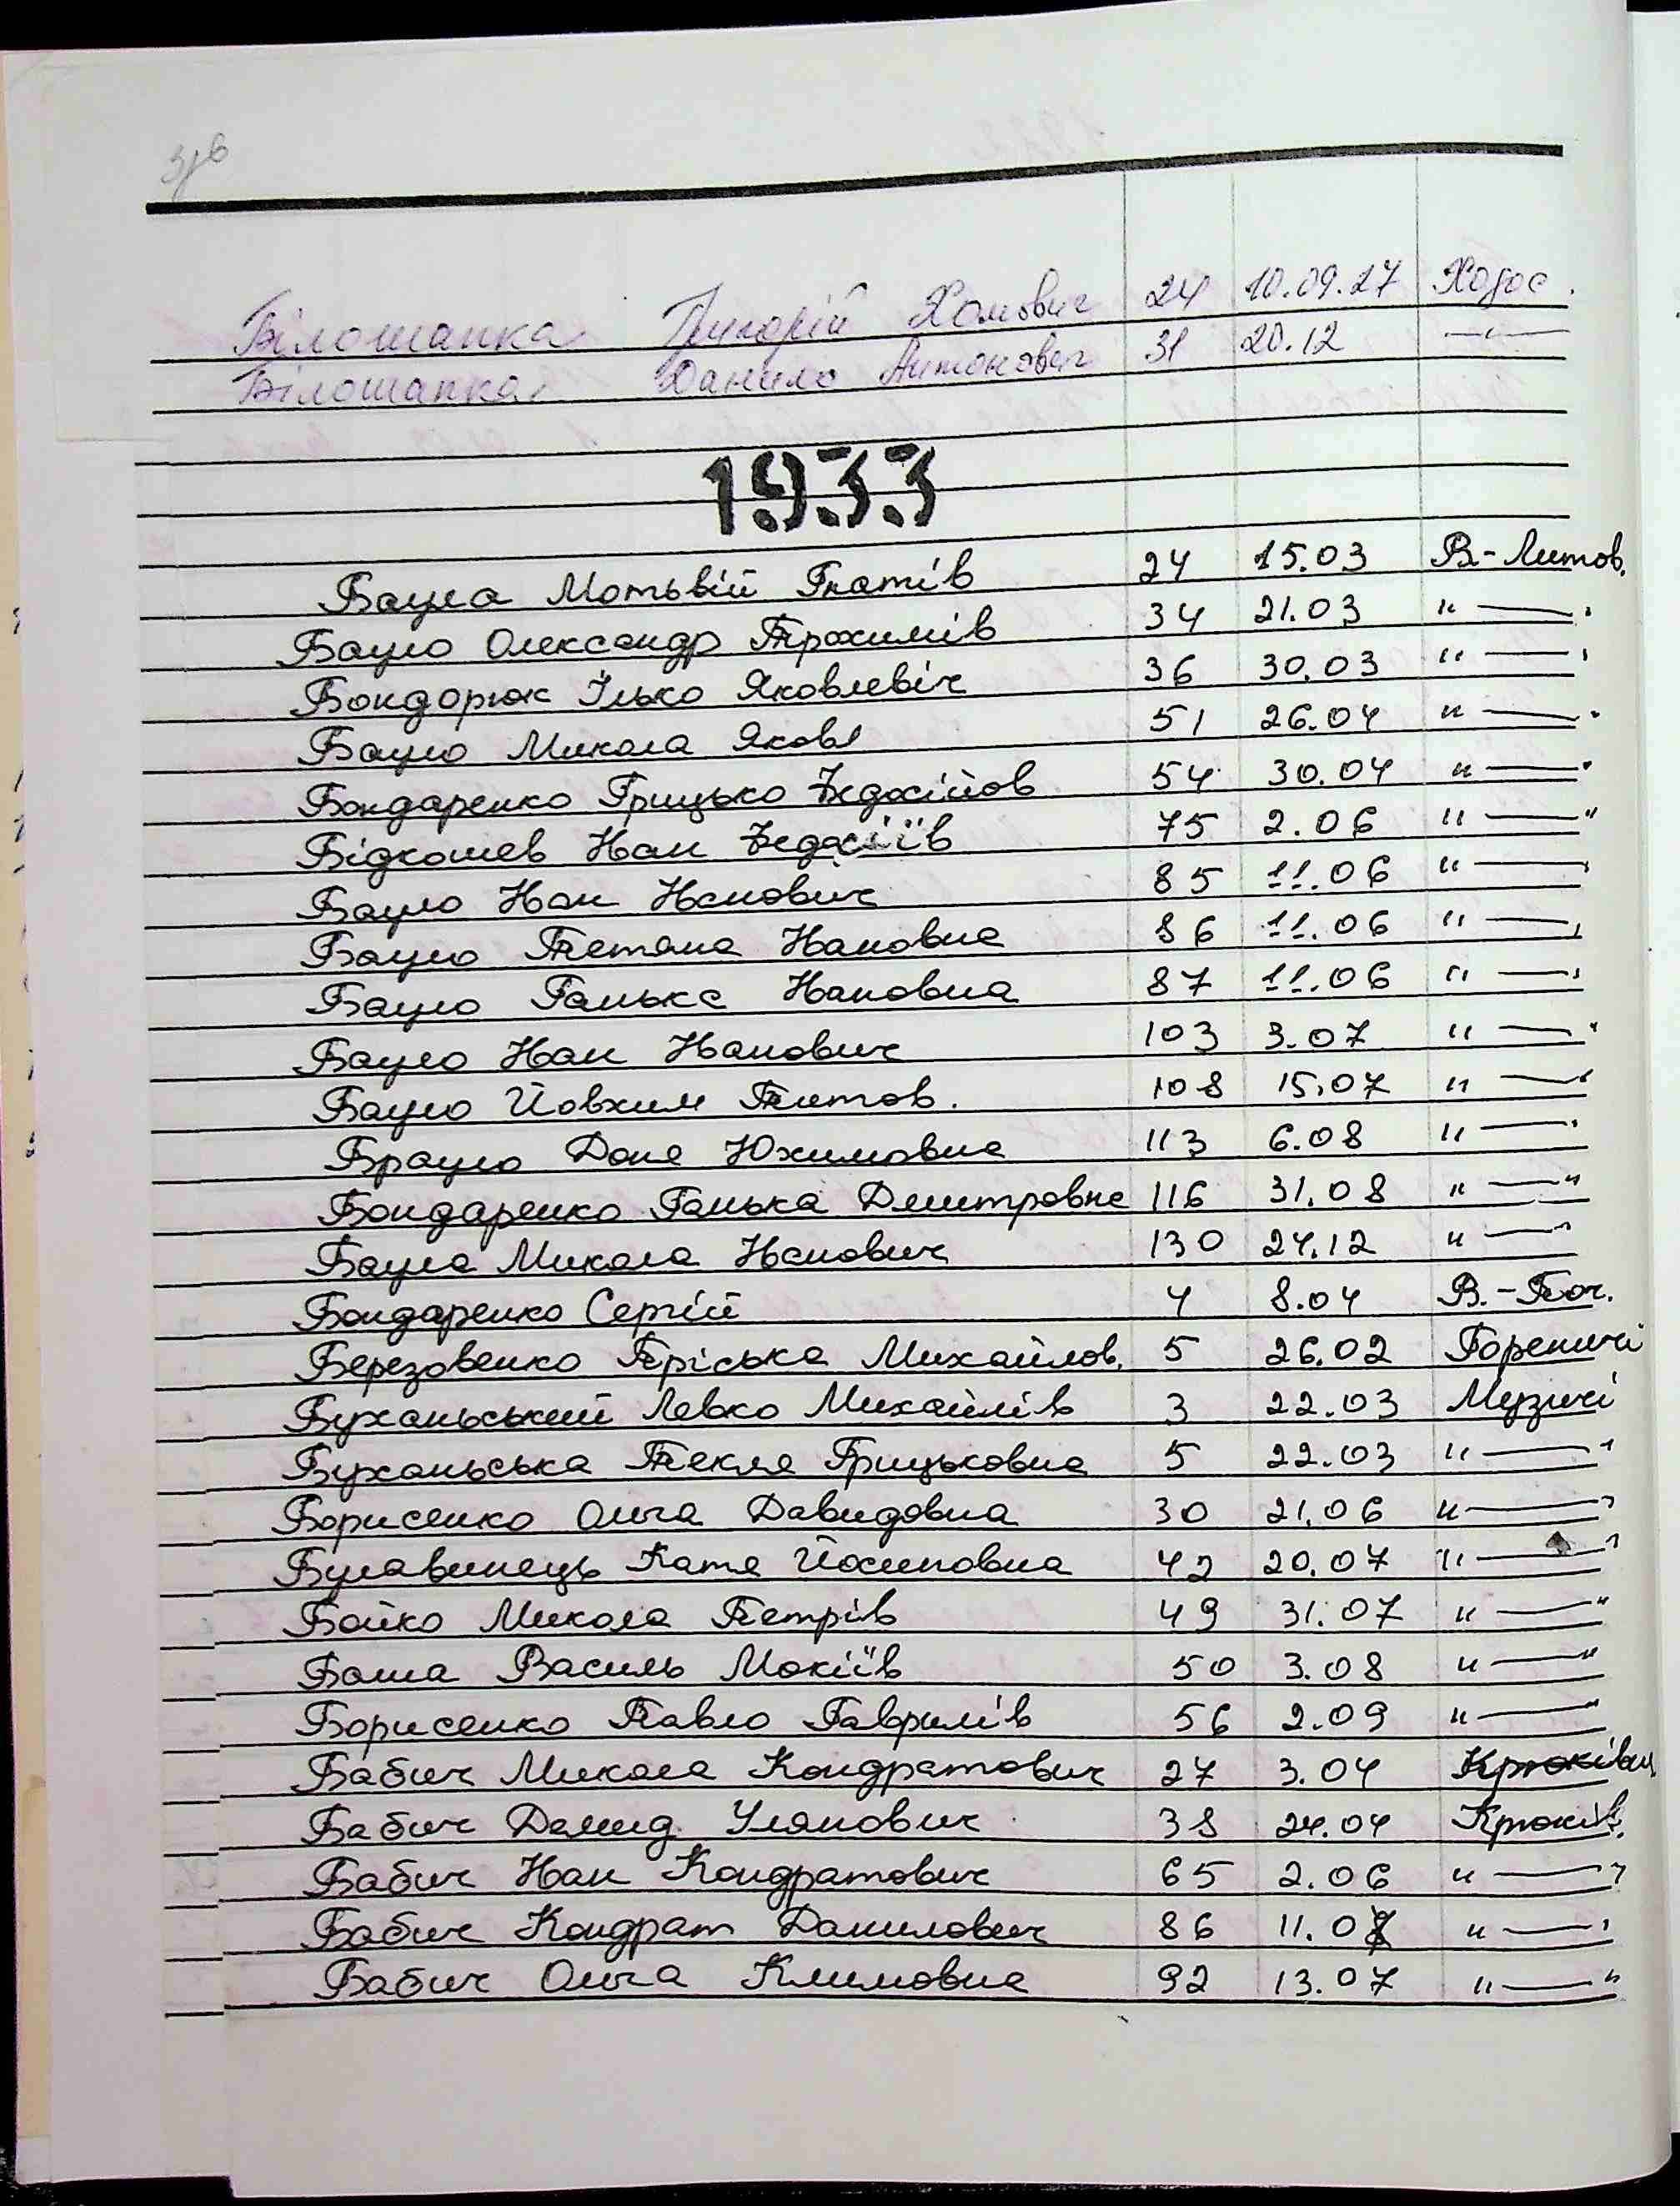 Білошапка Григорій Хомович 24 10.09.27 Ходос.
Білошапка Данило Антонович 31 20.12 —"—
1933
Баула Мотьвій Гнатів 24 15.03 В-Литов.
Бауло Олександр Трохимів 34 21.03 "—"
Бондорюк Ілько Яковлевіч 36 30.03 "—"
Бауло Микола Яковл 51 26.04 "—"
Бондаренко Грицько Федосійов 54 30.04 "—"
Бідкошев Іван Федосіїв 75 2.06 "—"
Бауло Іван Іванович 85 11.06 "—"
Бауло Тетяна Івановна 86 11.06 "—"
Бауло Ганька Івановна 87 11.06 "—"
Бауло Іван Іванович 103 3.07 "—"
Бауло Йовхим Титов. 108 15.07 "—"
Брауло Доня Юхимовна 113 6.08 "—"
Бондаренко Ганька Дмитровна 116 31.08 "—"
Баула Микола Іванович 130 24.12 "—"
Бондаренко Сергій 4 8.04 В.-Боч.
Березовенко Пріська Михайлов. 5 26.02 Гореничі
Буханьський Левко Михайлів 3 22.03 Музичі
Буханьська Текля Грицьковна 5 22.03 "—"
Борисенко Ольга Давидовна 30 21.06 "—"
Булавинець Катя Йосиповна 42 20.07 "—"
Бойко Микола Петрів 49 31.07 "—"
Баша Василь Мокіїв 50 3.08 "—"
Борисенко Павло Гаврилів 56 2.09 "—"
Бабич Микола Кондратович 27 3.04
Бабич Демид Улянович 38 24.04 Крюків.
Бабич Іван Кондратович 65 2.06 "—"
Бабич Кондрат Данилович 86 11.07 "—"
Бабич Ольга Климовна 92 13.07 "—"